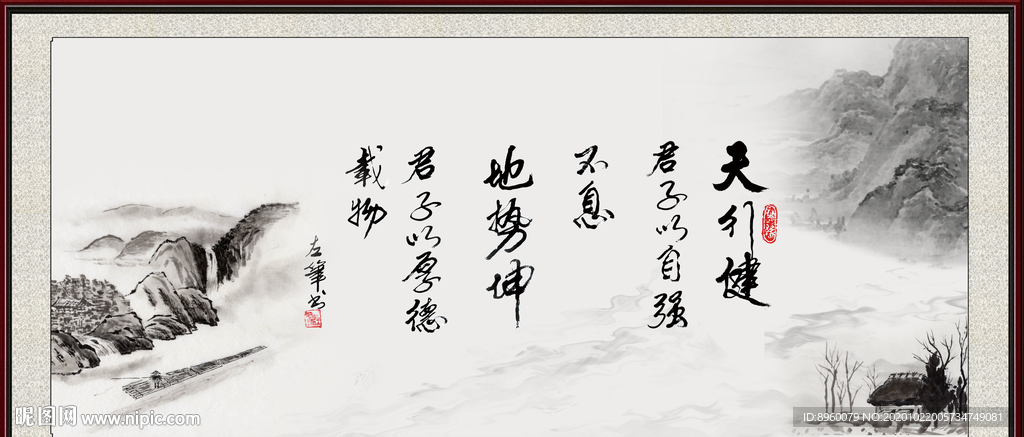 天行健
君子以自强
不息
地势坤
君子以厚德
载物
左笔书
昵图网 www.nipic.com
ID:8960079 NO:20201022005734749081